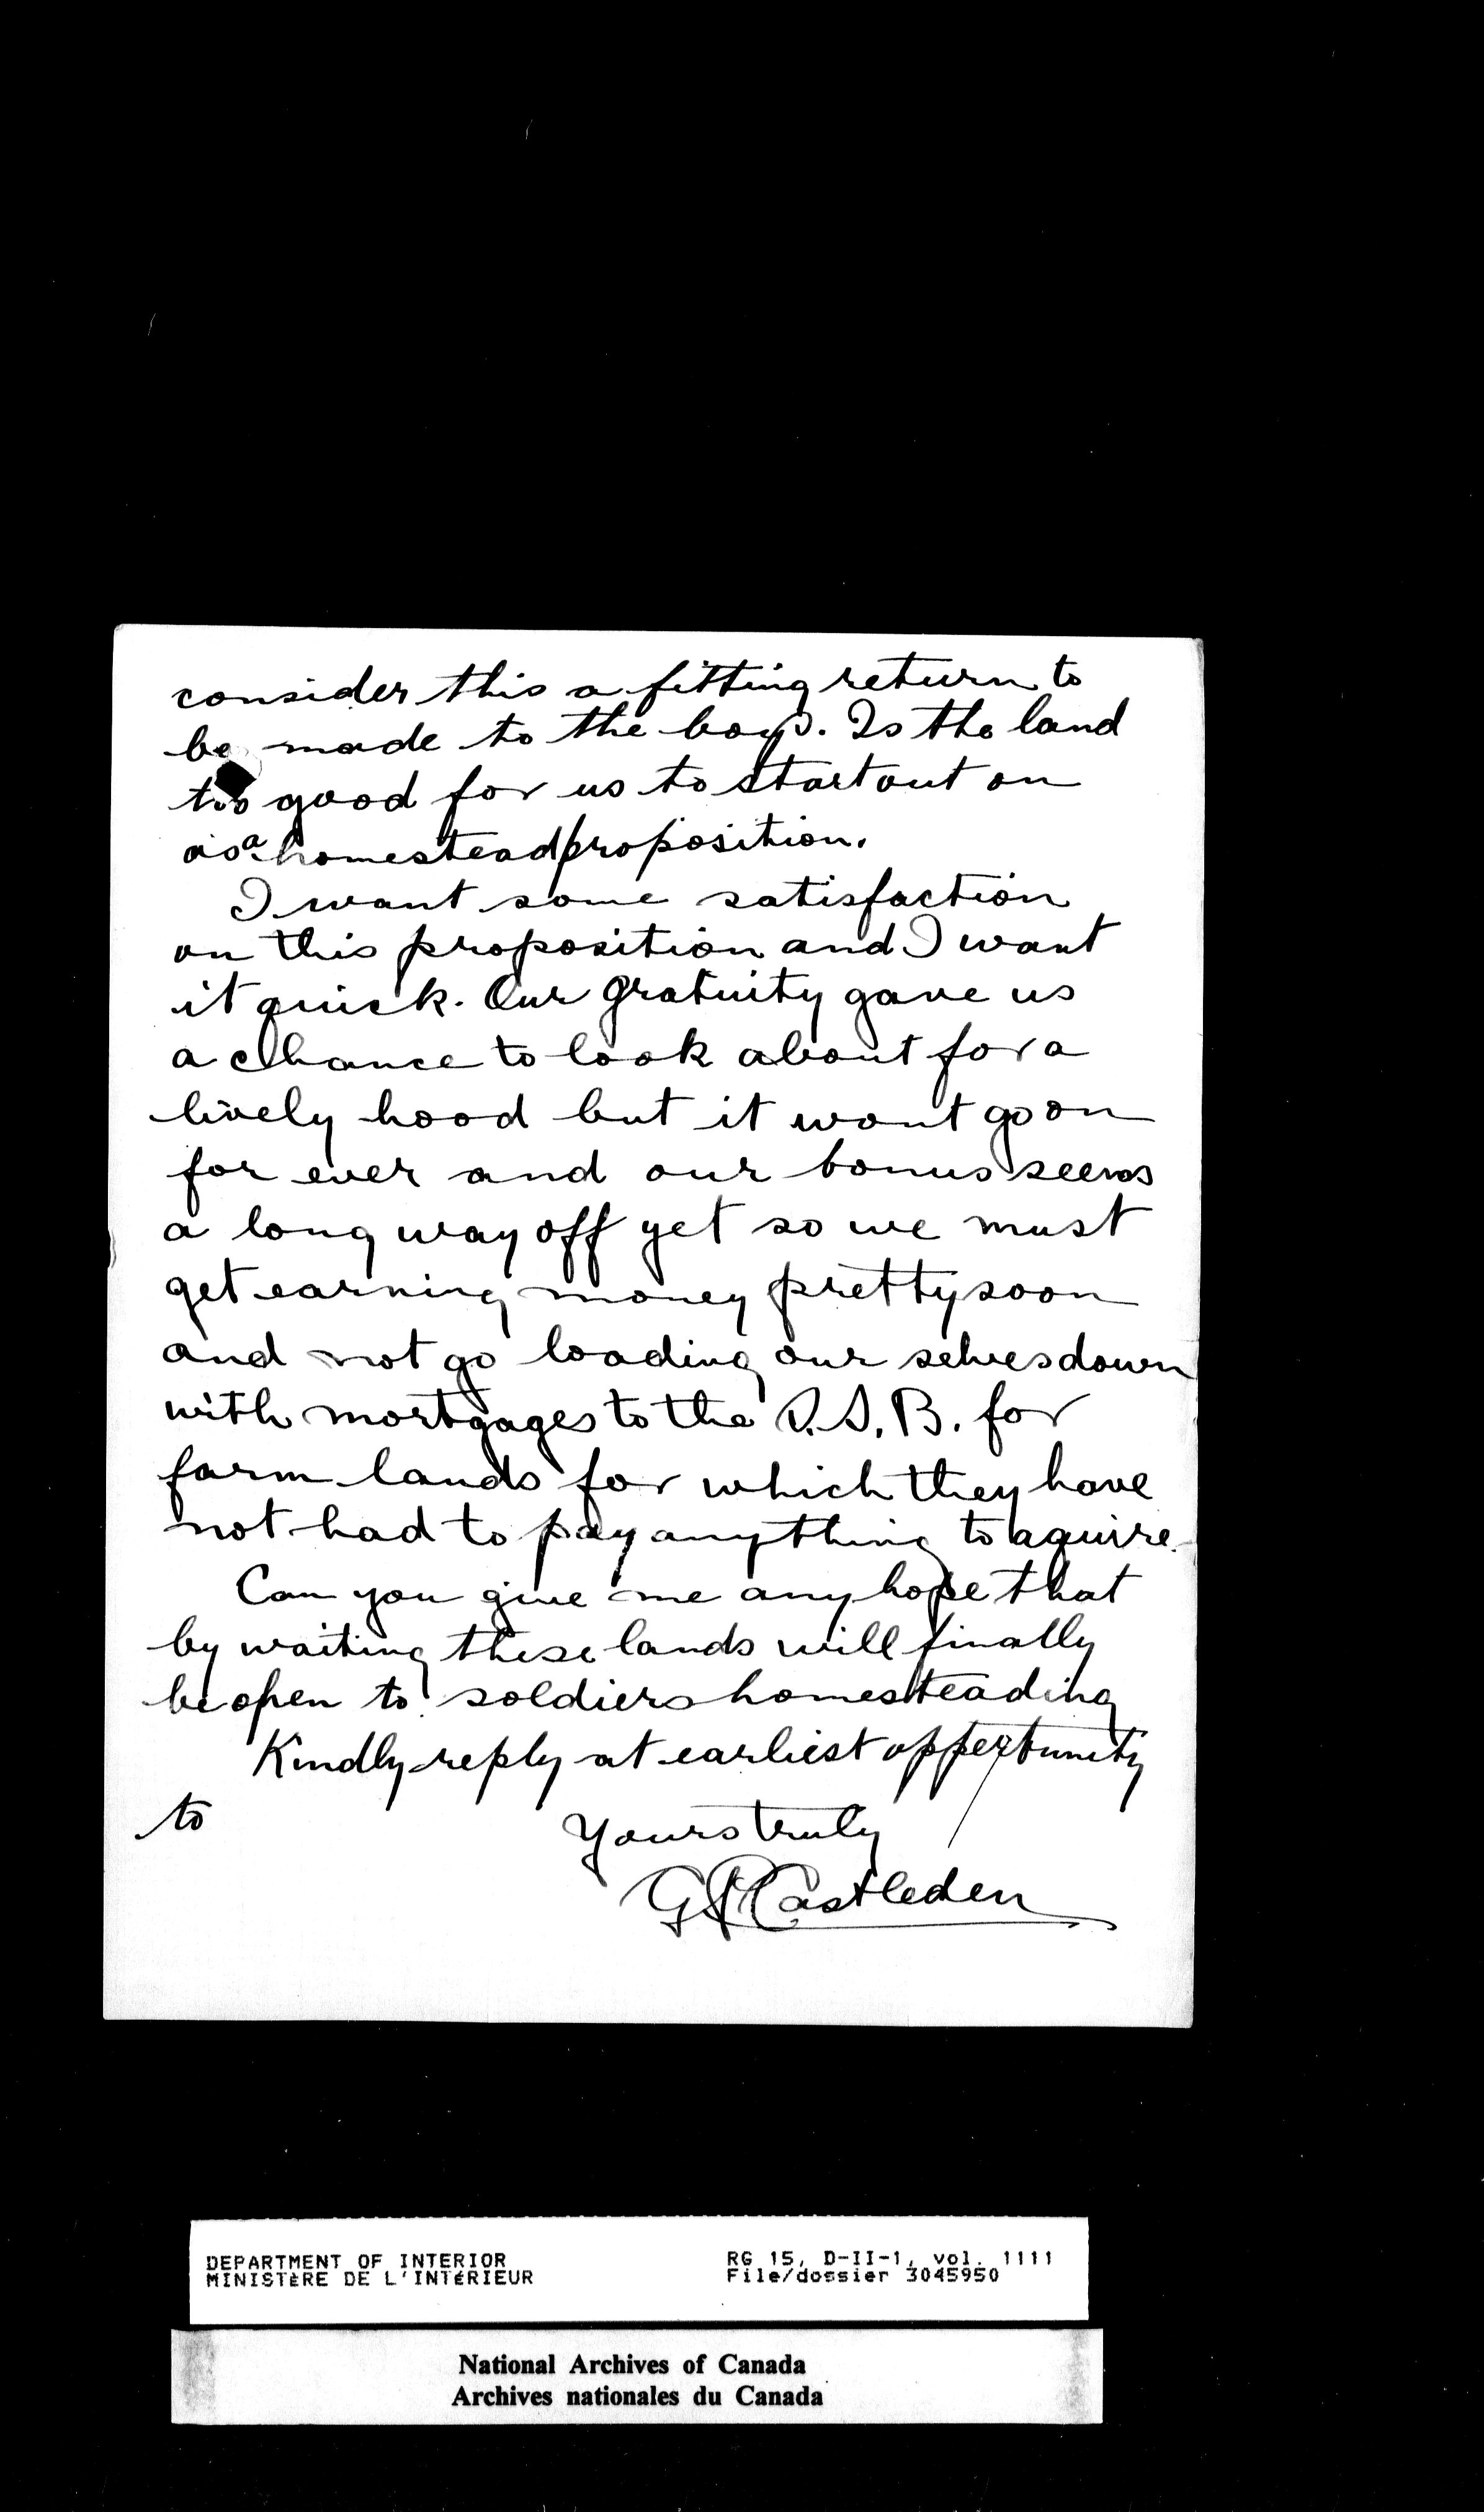 consider this a fitting return to
be made to the boys. Is the land
too good for us to start out on
as a homestead proposition.
I want some satisfaction
on this proposition and I want
it quick. Our Gratuity gave us
a chance to look about for a
lively hood but it wont go on
for ever and our bonus seems
a long way off yet so we must
get earning money pretty soon
and not go loading our selves down
with mortgages to the S.S.B. for
farm lands for which they have
not had to pay anything to aquire.
Can you give me any hope that
by waiting these lands will finally
be open to soldiers homesteading
Kindly reply at earliest oppertunity
to
Yours truly
Castleden
DEPARTMENT OF INTERIOR
MINISTÈRE DE L'INTÉRIEUR
RG 15, D-II-1, vol. 1111
File/dossier 3045950
National Archives of Canada
Archives nationales du Canada